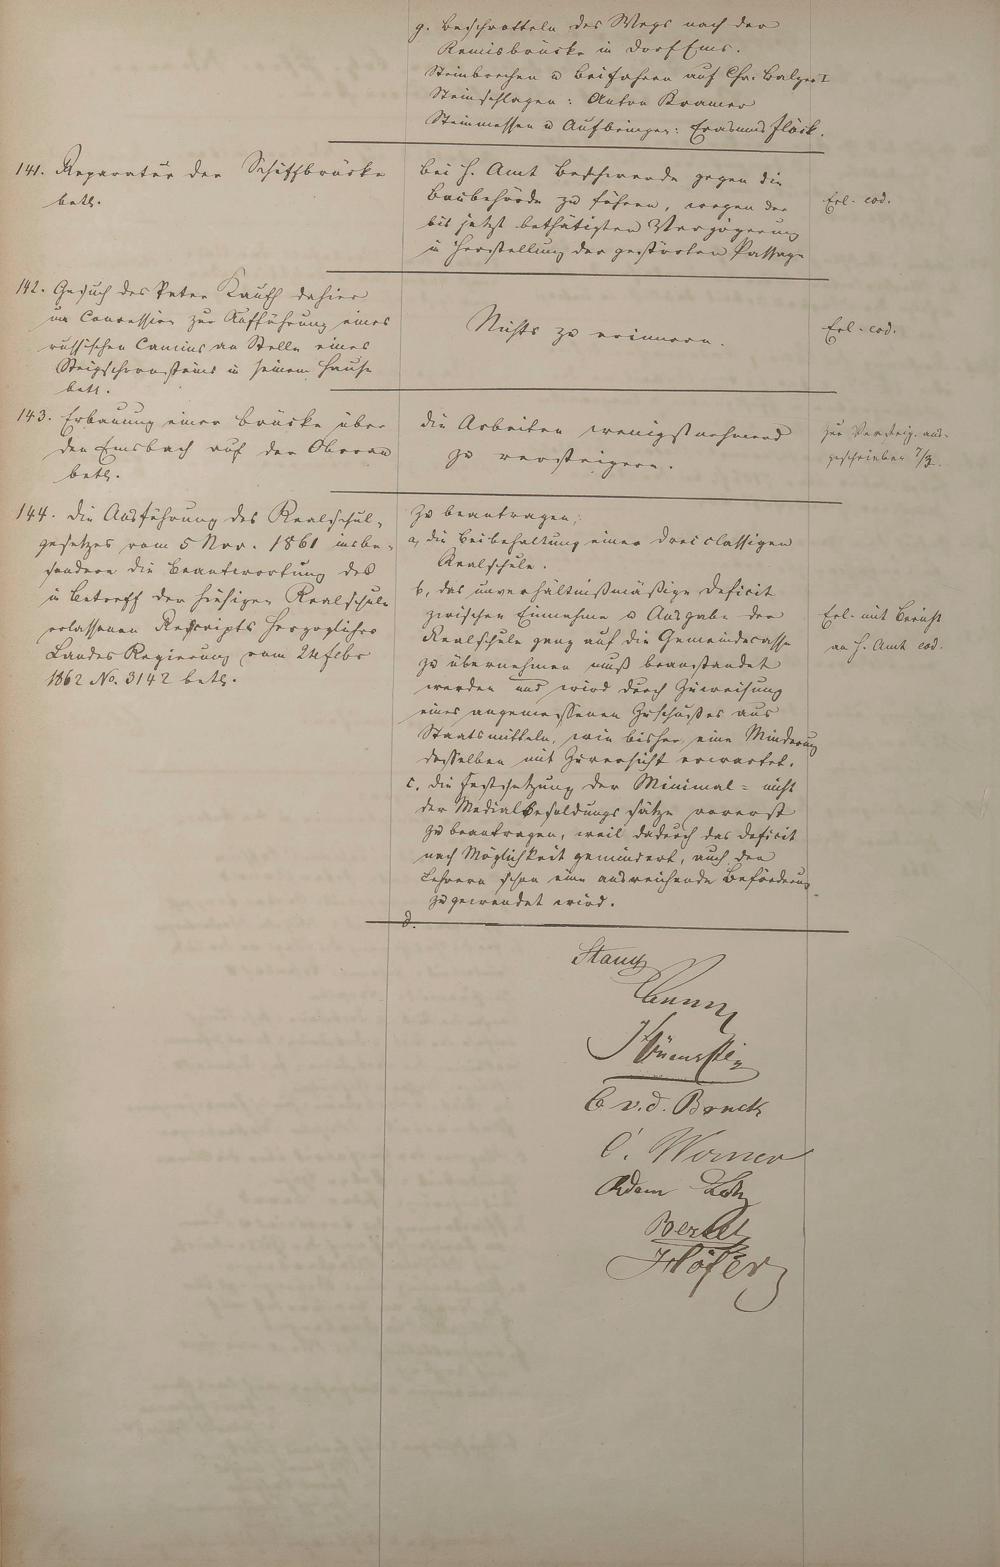 g. Beschrotteln des Wegs nach der
Remisbrücke in Dorf Ems.
Steinbrechen u Beifahren auf Chr. Balzer I
Steinschlagen: Anton Kramer
Steinmessen u Aufbringen: Erasmus Flöck.
141. Reparatur der Schiffbrücke
betr.
Bei H. Amt Beschwerde gegen die
Baubehörde zu führen, wegen der
bis jetzt bethätigten Verzögerung
in Herstellung der gestörten Passage
Erl. eod.
142. Gesuch des Peter Kauth dahier
um Concession zur Aufführung eines
russischen Camins an Stelle eines
Steigschornsteins in seinem Hause
betr.
Nichts zu erinnern.
Erl. eod.
143. Erbauung einer Brücke über
den Emsbach auf der Oberau
betr.
die Arbeiten wenigstnehmend
zu versteigern.
zur Versteig. aus-
geschrieben 7/3.
144. Die Ausführung des Realschul-
gesetzes vom 5 Nov. 1861 insbe-
sondere die Beantwortung des
in Betreff der hiesigen Realschule
erlassenen Rescripts Herzoglicher
Landes Regierung vom 24 Febr
1862 No. 3142 betr.
Zu beantragen:
a, die Beibehaltung einer dreiclassigen
Realschule.
b, das unverhältnißmäßige Deficit
zwischen Einnahme u Ausgabe der
Realschule ganz auf die Gemeindecasse
zu übernehmen muß beanstandet
werden und wird durch Zuweisung
eines angemessenen Zuschußes aus
Staatsmitteln, wie bisher eine Minderung
desselben mit Zuversicht erwartet.
c. die Festsetzung der Minimal- nicht
der Medialbesoldungssätze vorerst
zu beantragen, weil dadurch das Deficit
nach Möglichkeit gemindert, auch den
Lehrern schon eine ausreichende Beförderung
zugewendet wird.
Erl. mit Bericht
an H. Amt eod.
d.
C v. d. Bruck
C. Werner
Adam
Berdel
Höfer